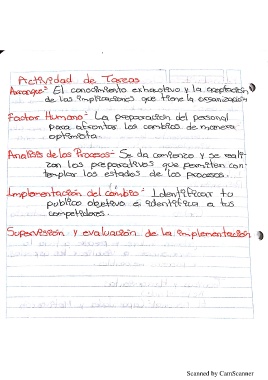 Actividad de Tareas
Arranque: El conocimiento exhaustivo y la aceptación
de las implicaciones que tiene la organización
Factor Humano: La preparación del personal
para afrontar los cambios de manera
optimista.
Analisis de los Procesos: Se da comienzo y se reali-
zan los preparativos que permiten con-
templar los estados de los procesos.
Implementación del cambio: Identificar tu
publico objetivo e identifica a tus
competidores.
Supervisión y evaluación de la implementación
Scanned by CamScanner